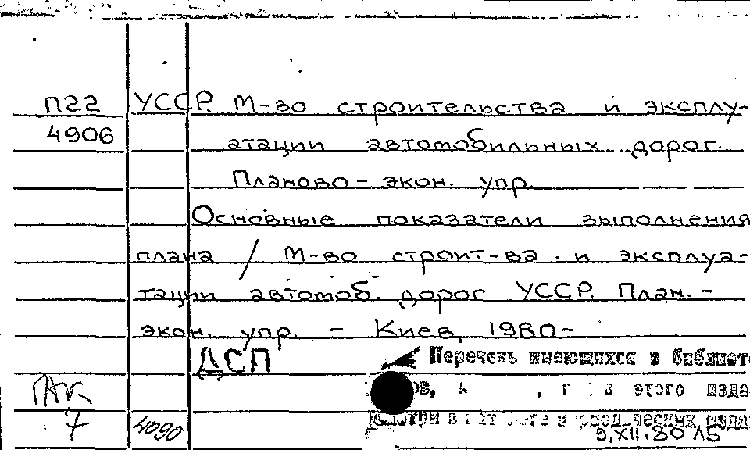 П22 УССР. М-во строительства и эксплу-
4906 атации автомобильных дорог.
Планово-экон. упр.
Основные показатели выполнения
плана / М-во строит-ва и эксплуа-
тации автомоб. дорог УССР. План.-
экон. упр. - Киев, 1980-
ДСП
Перечень имеющихся в библиоте
этого изда
7 4090
9.XII.80 ЛБ